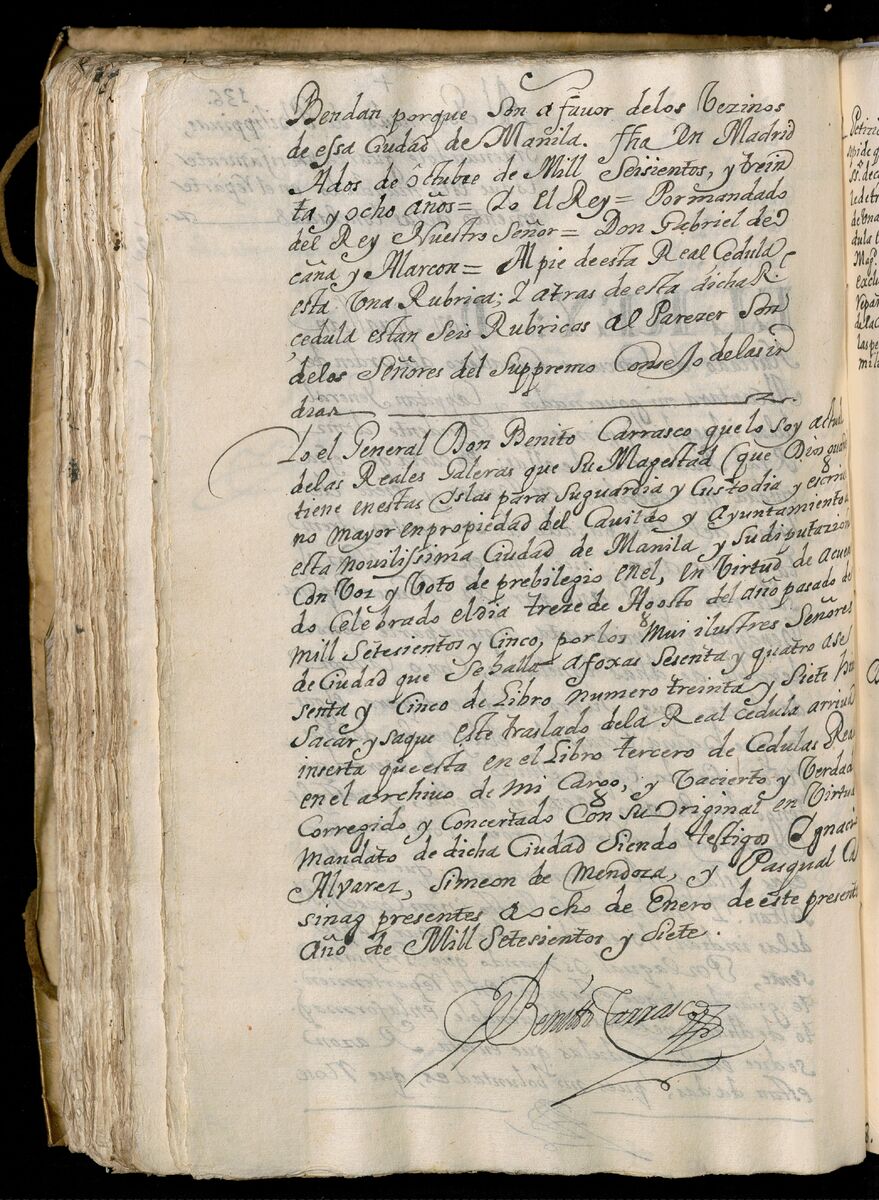 Bendan porque son a fuuor delos Vezinos
de essa Ciudad de Manila. fha En Madrid
Ados de octubre de Mill Seisientos, y trein
ta y ocho años = Yo El Rey = Pormandado
del Rey Nuestro Señor = Don Gabriel de O
caña y Alarcon = Alpie deesta Real Cedula
esta Vna Rubrica; Y atras de esta dicha R.
cedula estan Seis Rubricas al Parezer Son
delos Señores del Suppremo Consejo delas in
dias
Yo el General Don Benito Carrasco quelo soy actual
delas Reales Galeras que Su Magestad (que Dios guarde
tiene enestas Yslas para suguardia y Custodia y escriua
no mayor enpropiedad del Cauildo y Ayuntamiento
esta novilissima Ciudad de Manila y sudiputazion
Con Voz y Voto de prebilegio enel, en Virtud de acuer
do Celebrado eldia treze de Agosto del año pasado de
mill Setesientos y Cinco, por los Mui ilustres Señores
de Ciudad que se halla afoxas Sesenta y quatro a se
senta y Cinco de Libro numero treinta y Siete hize
Sacar y saque este traslado dela Real cedula arriua
inserta que esta en el Libro tercero de Cedulas Rea
en el archiuo de mi Cargo, y Vacierto y Verdad
Corregido y Concertado Con su Original en Virtud
mandato de dicha Ciudad Siendo testigos Ygnacio
Alvarez, Simeon de Mendoza, y Pasqual Ca
sinag presentes a ocho de Enero de este presente
año de Mill Setesientos y Siete.
Benito Carrasco